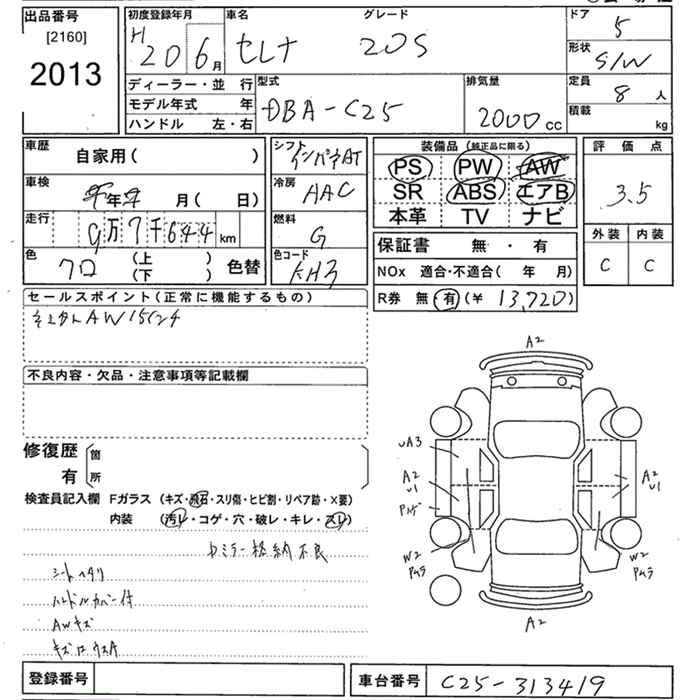 出品番号
[2160]
2013
初度登録年月
H 20 6月
車名
セレナ
グレード
20S
ドア
5
形状
S/W
ディーラー・並 行
モデル年式 年
ハンドル 左・右
型式
DBA-C25
排気量
2000cc
定員
8人
積載
kg
車歴
自家用( )
車検
年 月( 日)
走行
9万7千644km
色
クロ (上 下) 色替
シフト
インパネAT
冷房
AAC
燃料
G
色コード
KH3
装備品(純正品に限る)
PS PW AW
SR ABS エアB
本革 TV ナビ
保証書 無・有
NOx 適合・不適合( 年 月)
R券 無・有(¥ 13,720)
評価点
3.5
外装 内装
C C
セールスポイント(正常に機能するもの)
AW 15インチ
不良内容・欠品・注意事項等記載欄
修復歴
有
箇所
検査員記入欄 Fガラス(キズ・飛石・スリ傷・ヒビ割・リペア跡・X要)
内装(汚レ・コゲ・穴・破レ・キレ・スレ)
ミラー格納不良
シートヘタリ
ハンドルカバー付
AWキズ
A2
UA3
A2
U1
A2
U1
W2
Pムラ
W2
Pムラ
A2
登録番号
車台番号 C25-313419